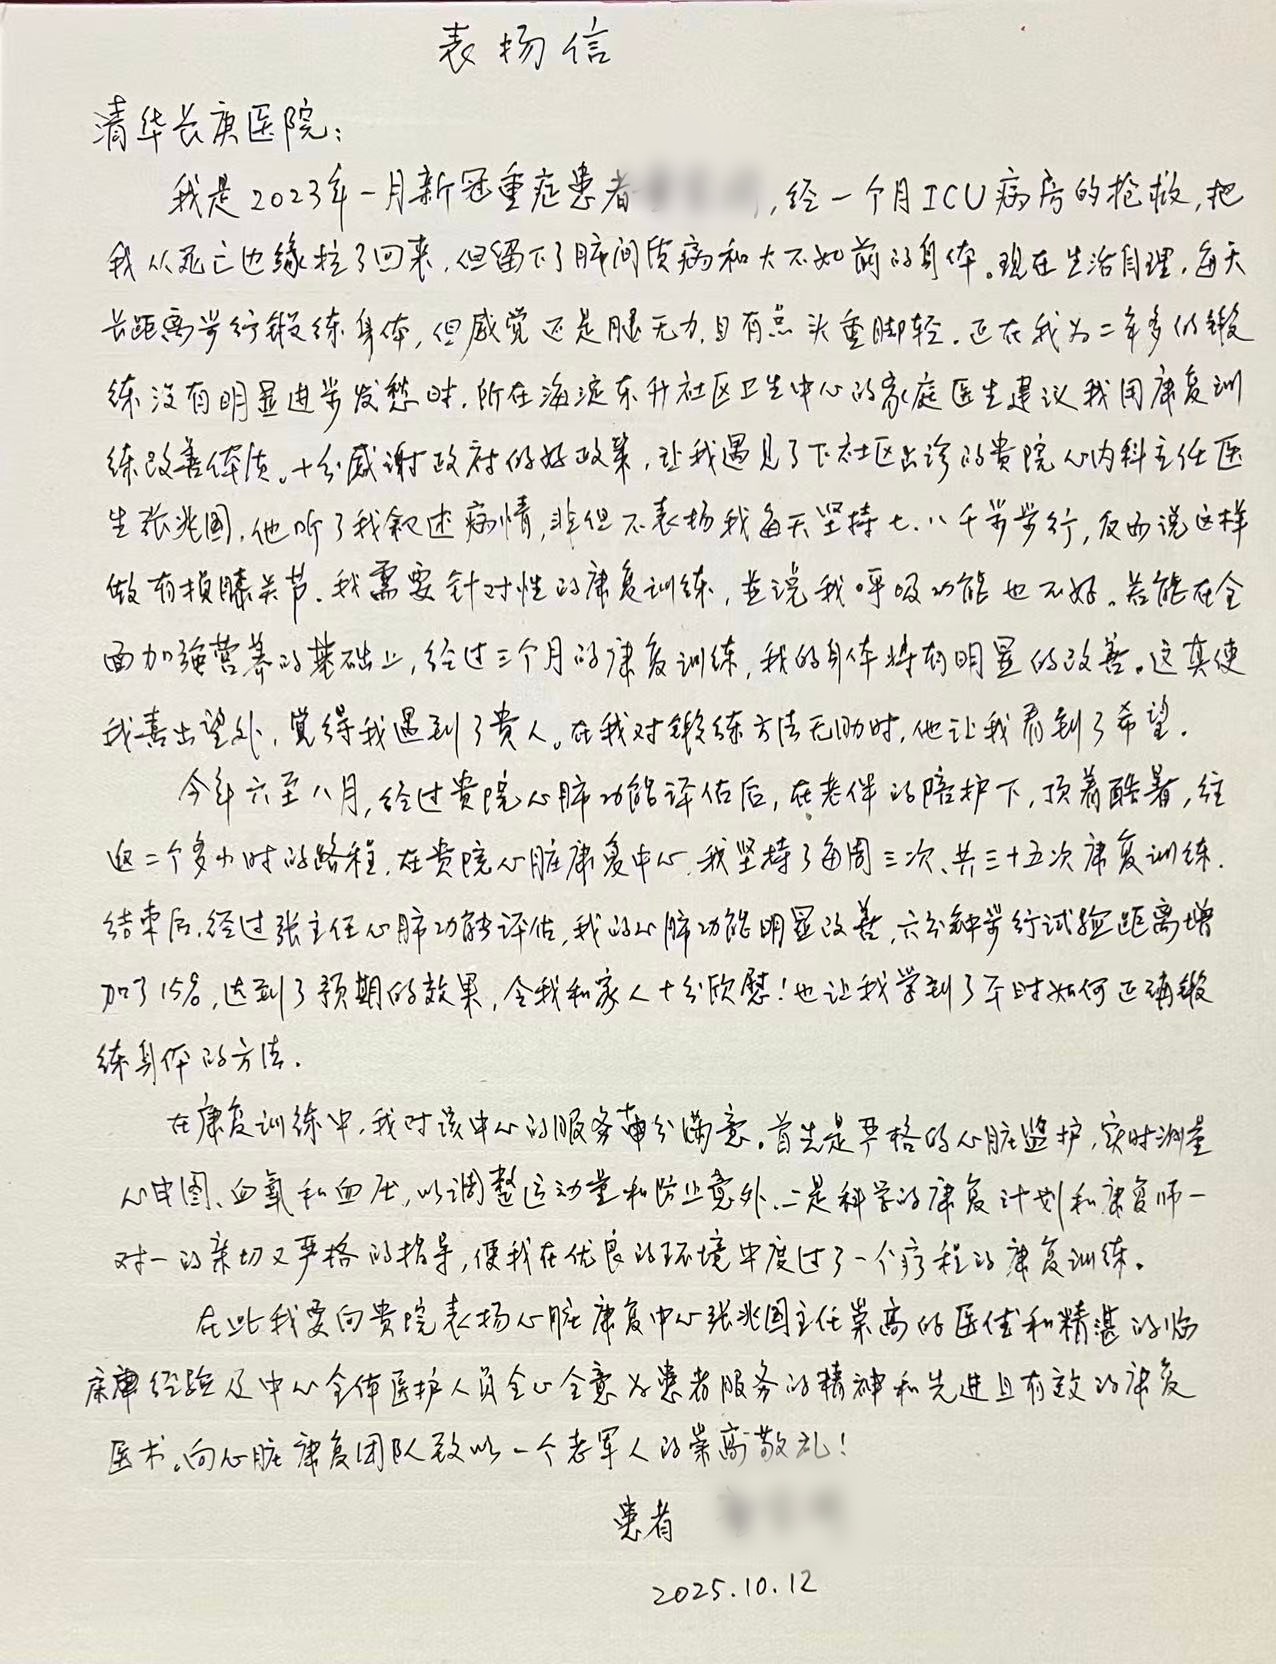 表扬信
清华长庚医院：
我是2023年一月新冠重症患者，经一个月ICU病房的抢救，把
我从死亡边缘拉了回来，但留下了肺间质病和大不如前的身体。现在生活自理，每天
长距离步行锻练身体，但感觉还是腿无力，且有点头重脚轻。正在我为二年多的锻
练没有明显进步发愁时，所在海淀东升社区卫生中心的家庭医生建议我用康复训
练改善体质。十分感谢政府的好政策，让我遇见了下社区出诊的贵院心内科主任医
生张兆国，他听了我叙述病情，非但不表扬我每天坚持七、八千步步行，反而说这样
做有损膝关节，我需要针对性的康复训练，并说我呼吸功能也不好。若能在全
面加强营养的基础上，经过三个月的康复训练，我的身体将有明显的改善。这真使
我喜出望外，觉得我遇到了贵人。在我对锻练方法无助时，他让我看到了希望。
今年六至八月，经过贵院心肺功能评估后，在老伴的陪护下，顶着酷暑，往
返二个多小时的路程，在贵院心脏康复中心，我坚持了每周三次、共三十五次康复训练。
结束后，经过张主任心肺功能评估，我的心肺功能明显改善，六分钟步行试验距离增
加了15%，达到了预期的效果，令我和家人十分欣慰！也让我学到了平时如何正确锻
练身体的方法。
在康复训练中，我对该中心的服务十分满意。首先是严格的心脏监护，实时测量
心电图、血氧和血压，以调整运动量和防止意外。二是科学的康复计划和康复师一
对一的亲切又严格的指导，使我在优良的环境中度过了一个疗程的康复训练。
在此我要向贵院表扬心脏康复中心张兆国主任崇高的医德和精湛的临
床经验及中心全体医护人员全心全意为患者服务的精神和先进且有效的康复
医术。向心脏康复团队致以一个老军人的崇高敬礼！
患者
2025.10.12